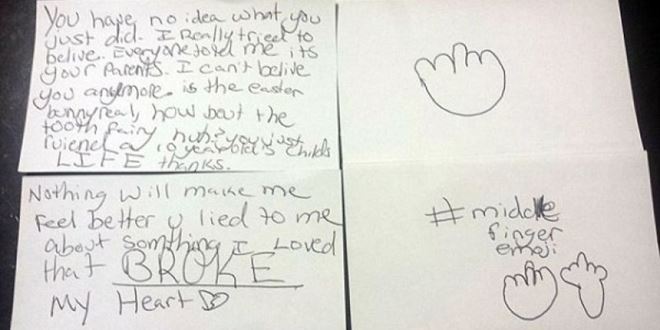 You have no idea what you
just did. I Really tried to
belive. Everyone told me its
your Parents. I can't belive
you anymore. is the easter
bunny real, how bout the
tooth fairy huh? you just
ruiened a 10 year old's childs
LIFE thanks.
Nothing will make me
Feel better u lied to me
about something I Loved
that BROKE
My Heart
#middle
finger
emoji